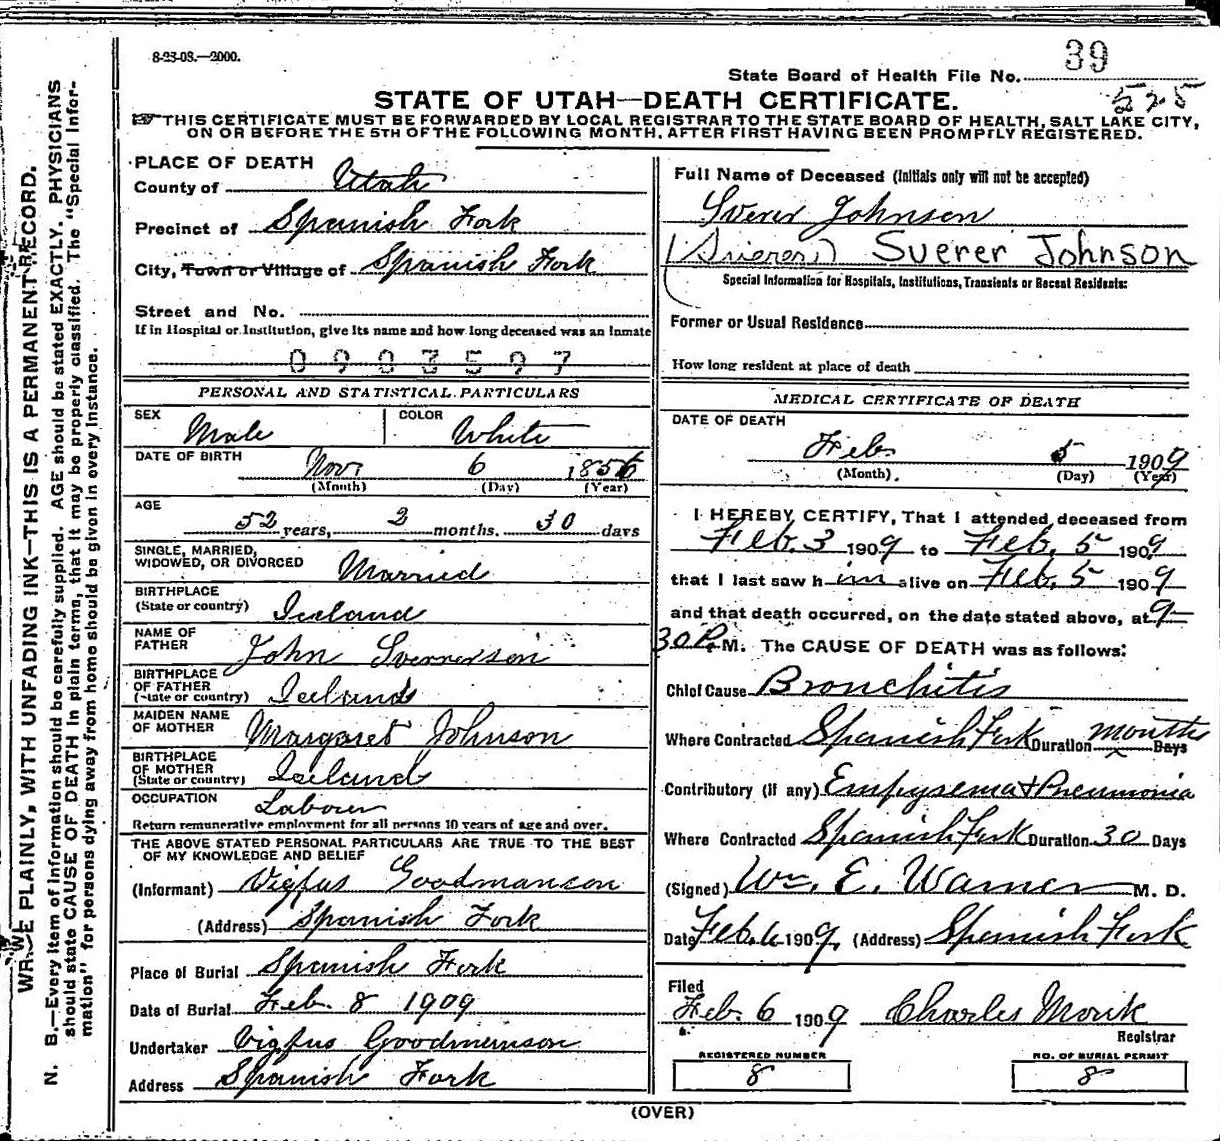 8-23-08.—2000.
39
State Board of Health File No.
525
STATE OF UTAH—DEATH CERTIFICATE.
THIS CERTIFICATE MUST BE FORWARDED BY LOCAL REGISTRAR TO THE STATE BOARD OF HEALTH, SALT LAKE CITY,
ON OR BEFORE THE 5TH OF THE FOLLOWING MONTH, AFTER FIRST HAVING BEEN PROMPTLY REGISTERED.
WRITE PLAINLY, WITH UNFADING INK—THIS IS A PERMANENT RECORD.
N. B.—Every item of information should be carefully supplied. AGE should be stated EXACTLY. PHYSICIANS
should state CAUSE OF DEATH in plain terms, that it may be properly classified. The "Special Infor-
mation" for persons dying away from home should be given in every instance.
PLACE OF DEATH
County of Utah
Precinct of Spanish Fork
City, Town or Village of Spanish Fork
Street and No.
If in Hospital or Institution, give its name and how long deceased was an inmate
0903597
PERSONAL AND STATISTICAL PARTICULARS
SEX Male COLOR White
DATE OF BIRTH Nov 6 1856
(Month) (Day) (Year)
AGE
52 years, 2 months. 30 days
SINGLE, MARRIED,
WIDOWED, OR DIVORCED Married
BIRTHPLACE
(State or country) Iceland
NAME OF
FATHER John Sverrerson
BIRTHPLACE
OF FATHER
(State or country) Iceland
MAIDEN NAME
OF MOTHER Margaret Johnson
BIRTHPLACE
OF MOTHER
(State or country) Iceland
OCCUPATION Laborer
Return remunerative employment for all persons 10 years of age and over.
THE ABOVE STATED PERSONAL PARTICULARS ARE TRUE TO THE BEST
OF MY KNOWLEDGE AND BELIEF
(Informant) Vigfus Goodmanson
(Address) Spanish Fork
Place of Burial Spanish Fork
Date of Burial Feb. 8 1909
Undertaker Vigfus Goodmanson
Address Spanish Fork
Full Name of Deceased (Initials only will not be accepted)
Sverer Johnson
Suerer Johnson
Special Information for Hospitals, Institutions, Transients or Recent Residents:
Former or Usual Residence
How long resident at place of death
MEDICAL CERTIFICATE OF DEATH
DATE OF DEATH
Feb 5 1909
(Month). (Day) (Year)
I HEREBY CERTIFY, That I attended deceased from
Feb. 3 1909 to Feb. 5 1909
that I last saw him alive on Feb. 5 1909
and that death occurred, on the date stated above, at 9-
30 P.M. The CAUSE OF DEATH was as follows:
Chief Cause Bronchitis
Where Contracted Spanish Fork Duration months Days
Contributory (if any) Empysema & Pneumonia
Where Contracted Spanish Fork Duration 30 Days
(Signed) Wm. E. Warner M. D.
Date Feb. 6 1909. (Address) Spanish Fork
Filed
Feb. 6 1909 Charles Monk
Registrar
REGISTERED NUMBER
8
NO. OF BURIAL PERMIT
8
(OVER)